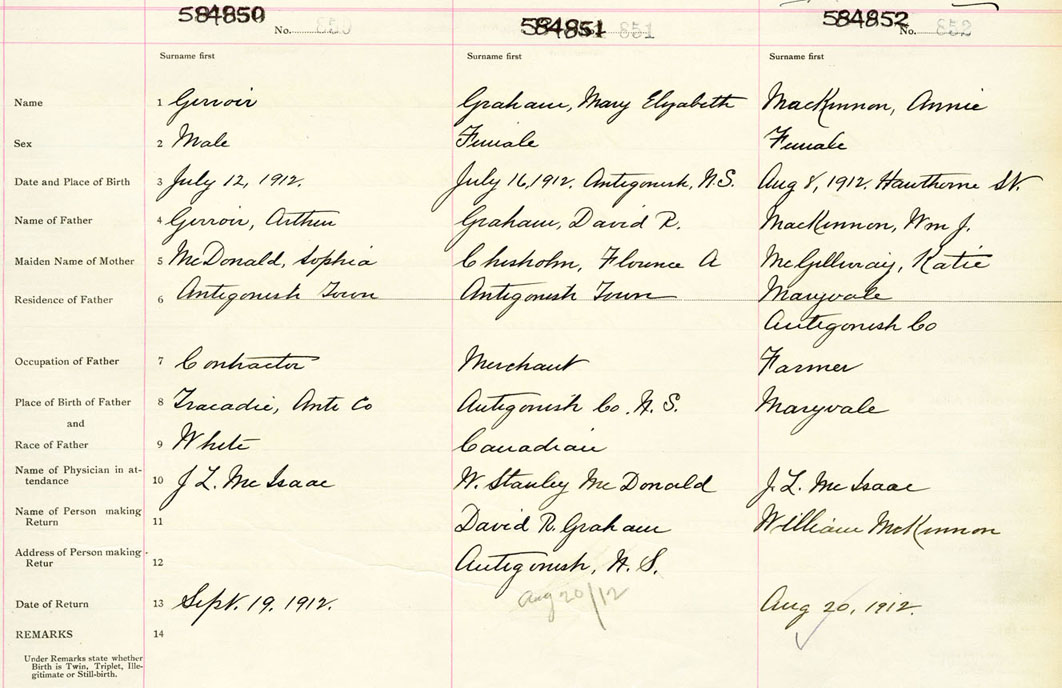 584850 584851 584852
No. 850 851 No. 852
Surname first Surname first Surname first
Name 1 Gerroir Graham, Mary Elizabeth MacKinnon, Annie
Sex 2 Male Female Female
Date and Place of Birth 3 July 12, 1912. July 16, 1912. Antigonish, N.S. Aug 8, 1912. Hawthorne St.
Name of Father 4 Gerroir, Arthur Graham, David R. MacKinnon, Wm J.
Maiden Name of Mother 5 McDonald, Sophia Chisholm, Florence A McGillivray, Katie
Residence of Father 6 Antigonish Town Antigonish Town Maryvale
Antigonish Co
Occupation of Father 7 Contractor Merchant Farmer
Place of Birth of Father 8 Tracadie, Anti Co Antigonish Co. N.S. Maryvale
and
Race of Father 9 White Canadian
Name of Physician in at-
tendance 10 J L. McIsaac W. Stanley McDonald J. L. McIsaac
Name of Person making
Return 11 David R. Graham William McKinnon
Address of Person making
Retur 12 Antigonish, N.S.
Date of Return 13 Sept. 19, 1912. Aug 20/12 Aug 20, 1912.
REMARKS 14
Under Remarks state whether
Birth is Twin, Triplet, Ille-
gitimate or Still-birth.